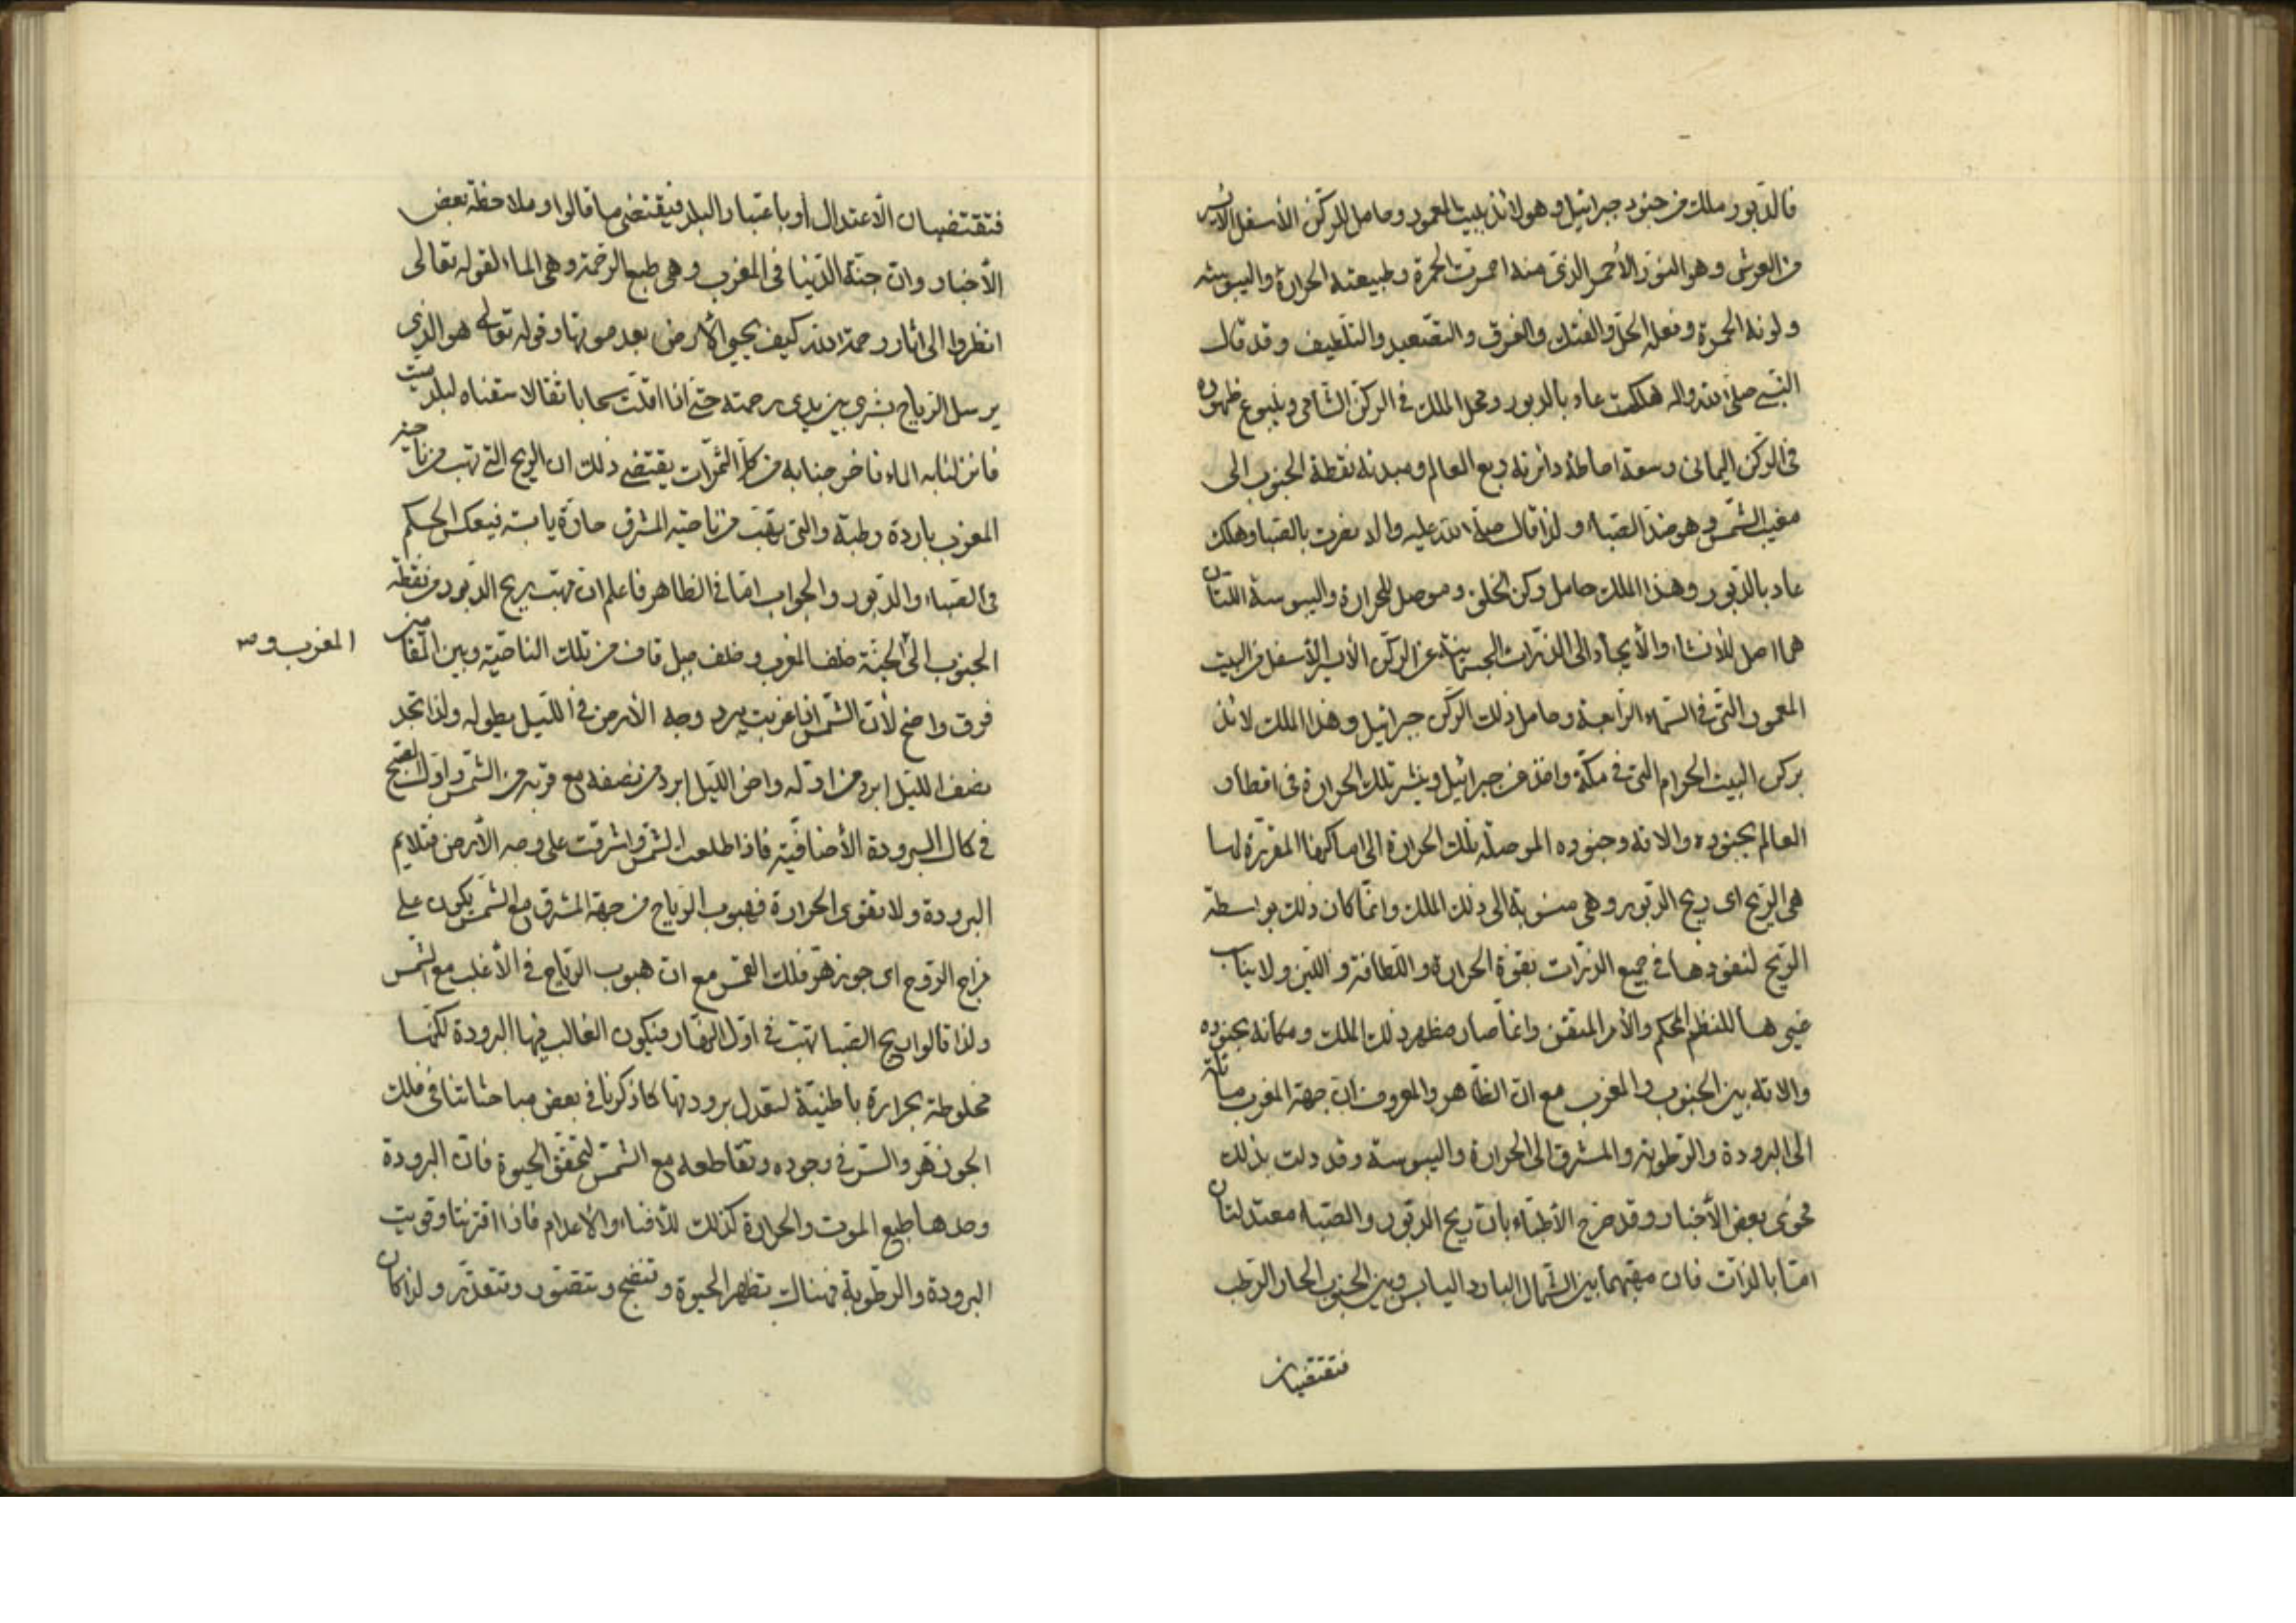 فالدبور ملك من جنود جبرائيل و هو لائذ بالبيت المعمور و حامل للركن الأسفل الأيسر
من العرش و هو النور الأحمر الذى منه احمرت الحمرة و طبيعته الحرارة و اليبوسة
و لونه الحمرة و فعله الحل و الفتك و الفرق و التصعيد و التلطيف و قد قال
النبى صلى الله و اله هلكت عاد بالدبور و محل الملك فى الركن الشامى و ينبوع ظهوره
فى الركن اليمانى و سعة احاطة دائرته ربع العالم و مبدئه نقطة الجنوب الى
مغيب الشمس و هو ضد الصباء و لذا قال صلى الله عليه و اله نصرت بالصبا و هلك
عاد بالدبور و هذا الملك حامل ركن الخلق و موصل للحرارة و اليبوسة اللتان
هما اصل للأنشاء و الأيجاد الى الذرات الجسمانية عن الركن الأيسر الأسفل من البيت
المعمور التى فى السماء الرابعة و حامل ذلك الركن جبرائيل و هذا الملك لائذ
بركن البيت الحرام التى فى مكة و اخذ عن جبرائيل و ينشر تلك الحرارة فى اقطار
العالم بجنوده و الاته و جنوده الموصلة تلك الحرارة الى اماكنها المقررة لها
هى الريح اى ريح الدبور و هى منسوبة الى ذلك الملك و انما كان ذلك بواسطة
الريح لنفوذها فى جميع الذرات بقوة الحرارة و اللطافة و اللين و لا يناسب
غيرها للنظم المحكم و الأمر المتقن و انما صار مظهر ذلك الملك و مكانه بجنوده
و الاته بين الجنوب و المغرب مع ان الظاهر و المعروف ان جهة المغرب مائلة
الى البرودة و الرطوبة و المشرق الى الحرارة و اليبوسة و قد دلت بذلك
فحوى بعض الأخبار و قد صرح الأطباء بان ريح الدبور و الصباء معتدلتان
اما بالذات فان مهبهما بين الشمال البارد اليابس و بين الجنوب الحار الرطب
فتقتضيان
فتقتضيان الأعتدال او باعتبار البلد فيقتضى ما قالوا و ملاحظة بعض
الأخبار و ان جنة الدنيا فى المغرب و هى طبع الرحمة و هى الماء لقوله تعالى
انظروا الى اثار رحمة الله كيف يحيى الأرض بعد موتها و قوله تعالى هو الذى
يرسل الرياح بشرى بين يدى رحمته حتى اذا اقلت سحابا ثقالا سقناه لبلد ميت
فانزلنا به الماء فاخرجنا به من كل الثمرات يقتضى ذلك ان الريح التى تهب من ناحية
المغرب باردة رطبة و التى تهب من ناحية المشرق حارة يابسة فينعكس الحكم
فى الصباء و الدبور و الجواب اما فى الظاهر فاعلم ان مهب ريح الدبور من نقطة
الجنوب الى الجنة خلف المغرب و خلف جبل قاف من تلك الناحية و بين المقامين
المغرب و صح
فرق واضح لأن الشمس اذا غربت يبرد وجه الأرض فى الليل بطوله و لذا تجد
نصف الليل ابرد من اوله و اخر الليل ابرد من نصفه مع قربه من الشمس و اول الصبح
فى كمال البرودة الأضافية فاذا طلعت الشمس و اشرقت على وجه الأرض فتلايم
البرودة و لا تقوى الحرارة فهبوب الرياح من جهة المشرق مع الشمس يكون على
مزاج الروح اى جوزهر فلك القمر مع ان هبوب الرياح فى الأغلب مع الشمس
و لذا قالوا ريح الصبا تهب فى اول النهار فيكون الغالب فيها البرودة لكنها
مخلوطة بحرارة باطنية لتعدل برودتها كما ذكرنا فى بعض مباحثاتنا فى فلك
الجوزهر و السر فى وجوده و تقاطعه مع الشمس لتحقق الحيوة فان البرودة
وحدها طبع الموت و الحرارة كذلك للأفناء و الأعدام فاذا اقترنتا و قويت
البرودة و الرطوبة فهنالك تظهر الحيوة و تنضج و تتصور و تتقدر و لذا كان